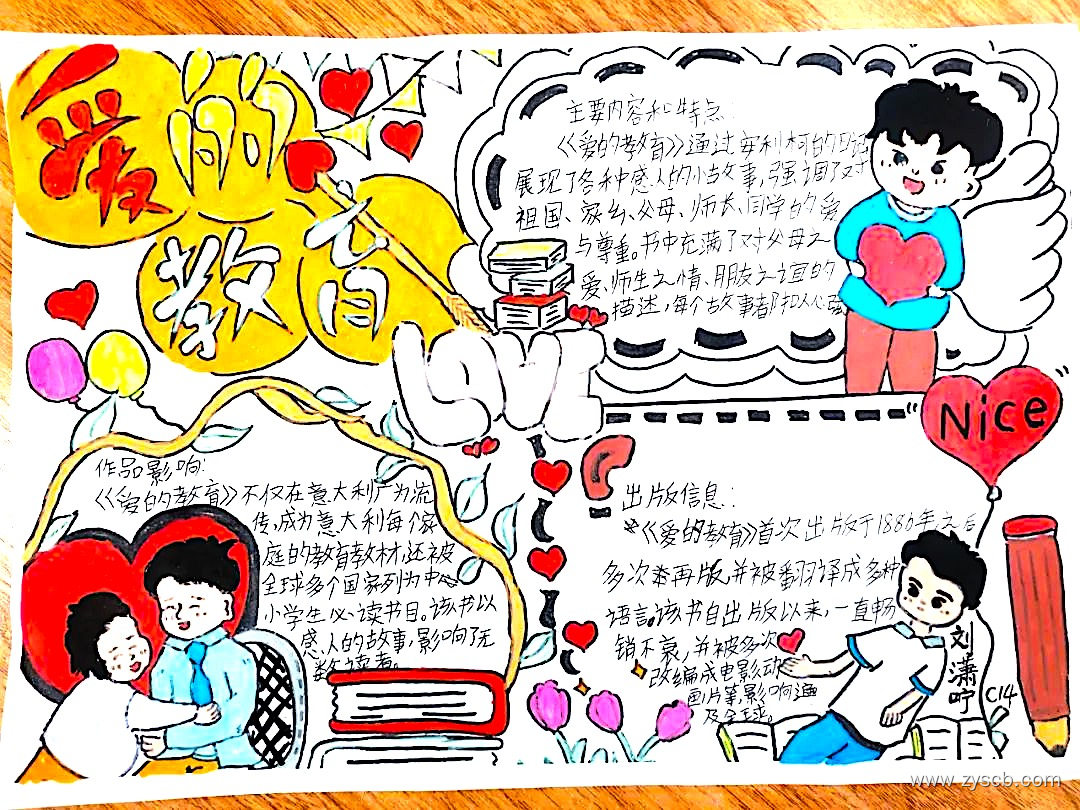 爱的
教育
主要内容和特点:
《爱的教育》通过安利柯的日记
展现了各种感人的小故事,强调了对
祖国、家乡、父母、师长、同学的爱
与尊重。书中充满了对父母之
爱、师生之情、朋友之谊的
描述,每个故事都扣人心弦
LOVE
Nice
作品影响:
《爱的教育》不仅在意大利广为流
传,成为意大利每个家
庭的教育教材,还被
全球多个国家列为中
小学生必读书目。该书以
感人的故事,影响了无
数读者。
出版信息:
《爱的教育》首次出版于1886年之后
多次再版,并被翻译成多种
语言。该书自出版以来,一直畅
销不衰,并被多次
改编成电影动
画片等,影响遍
及全球。
刘潇咛
C14
www.zyscb.com